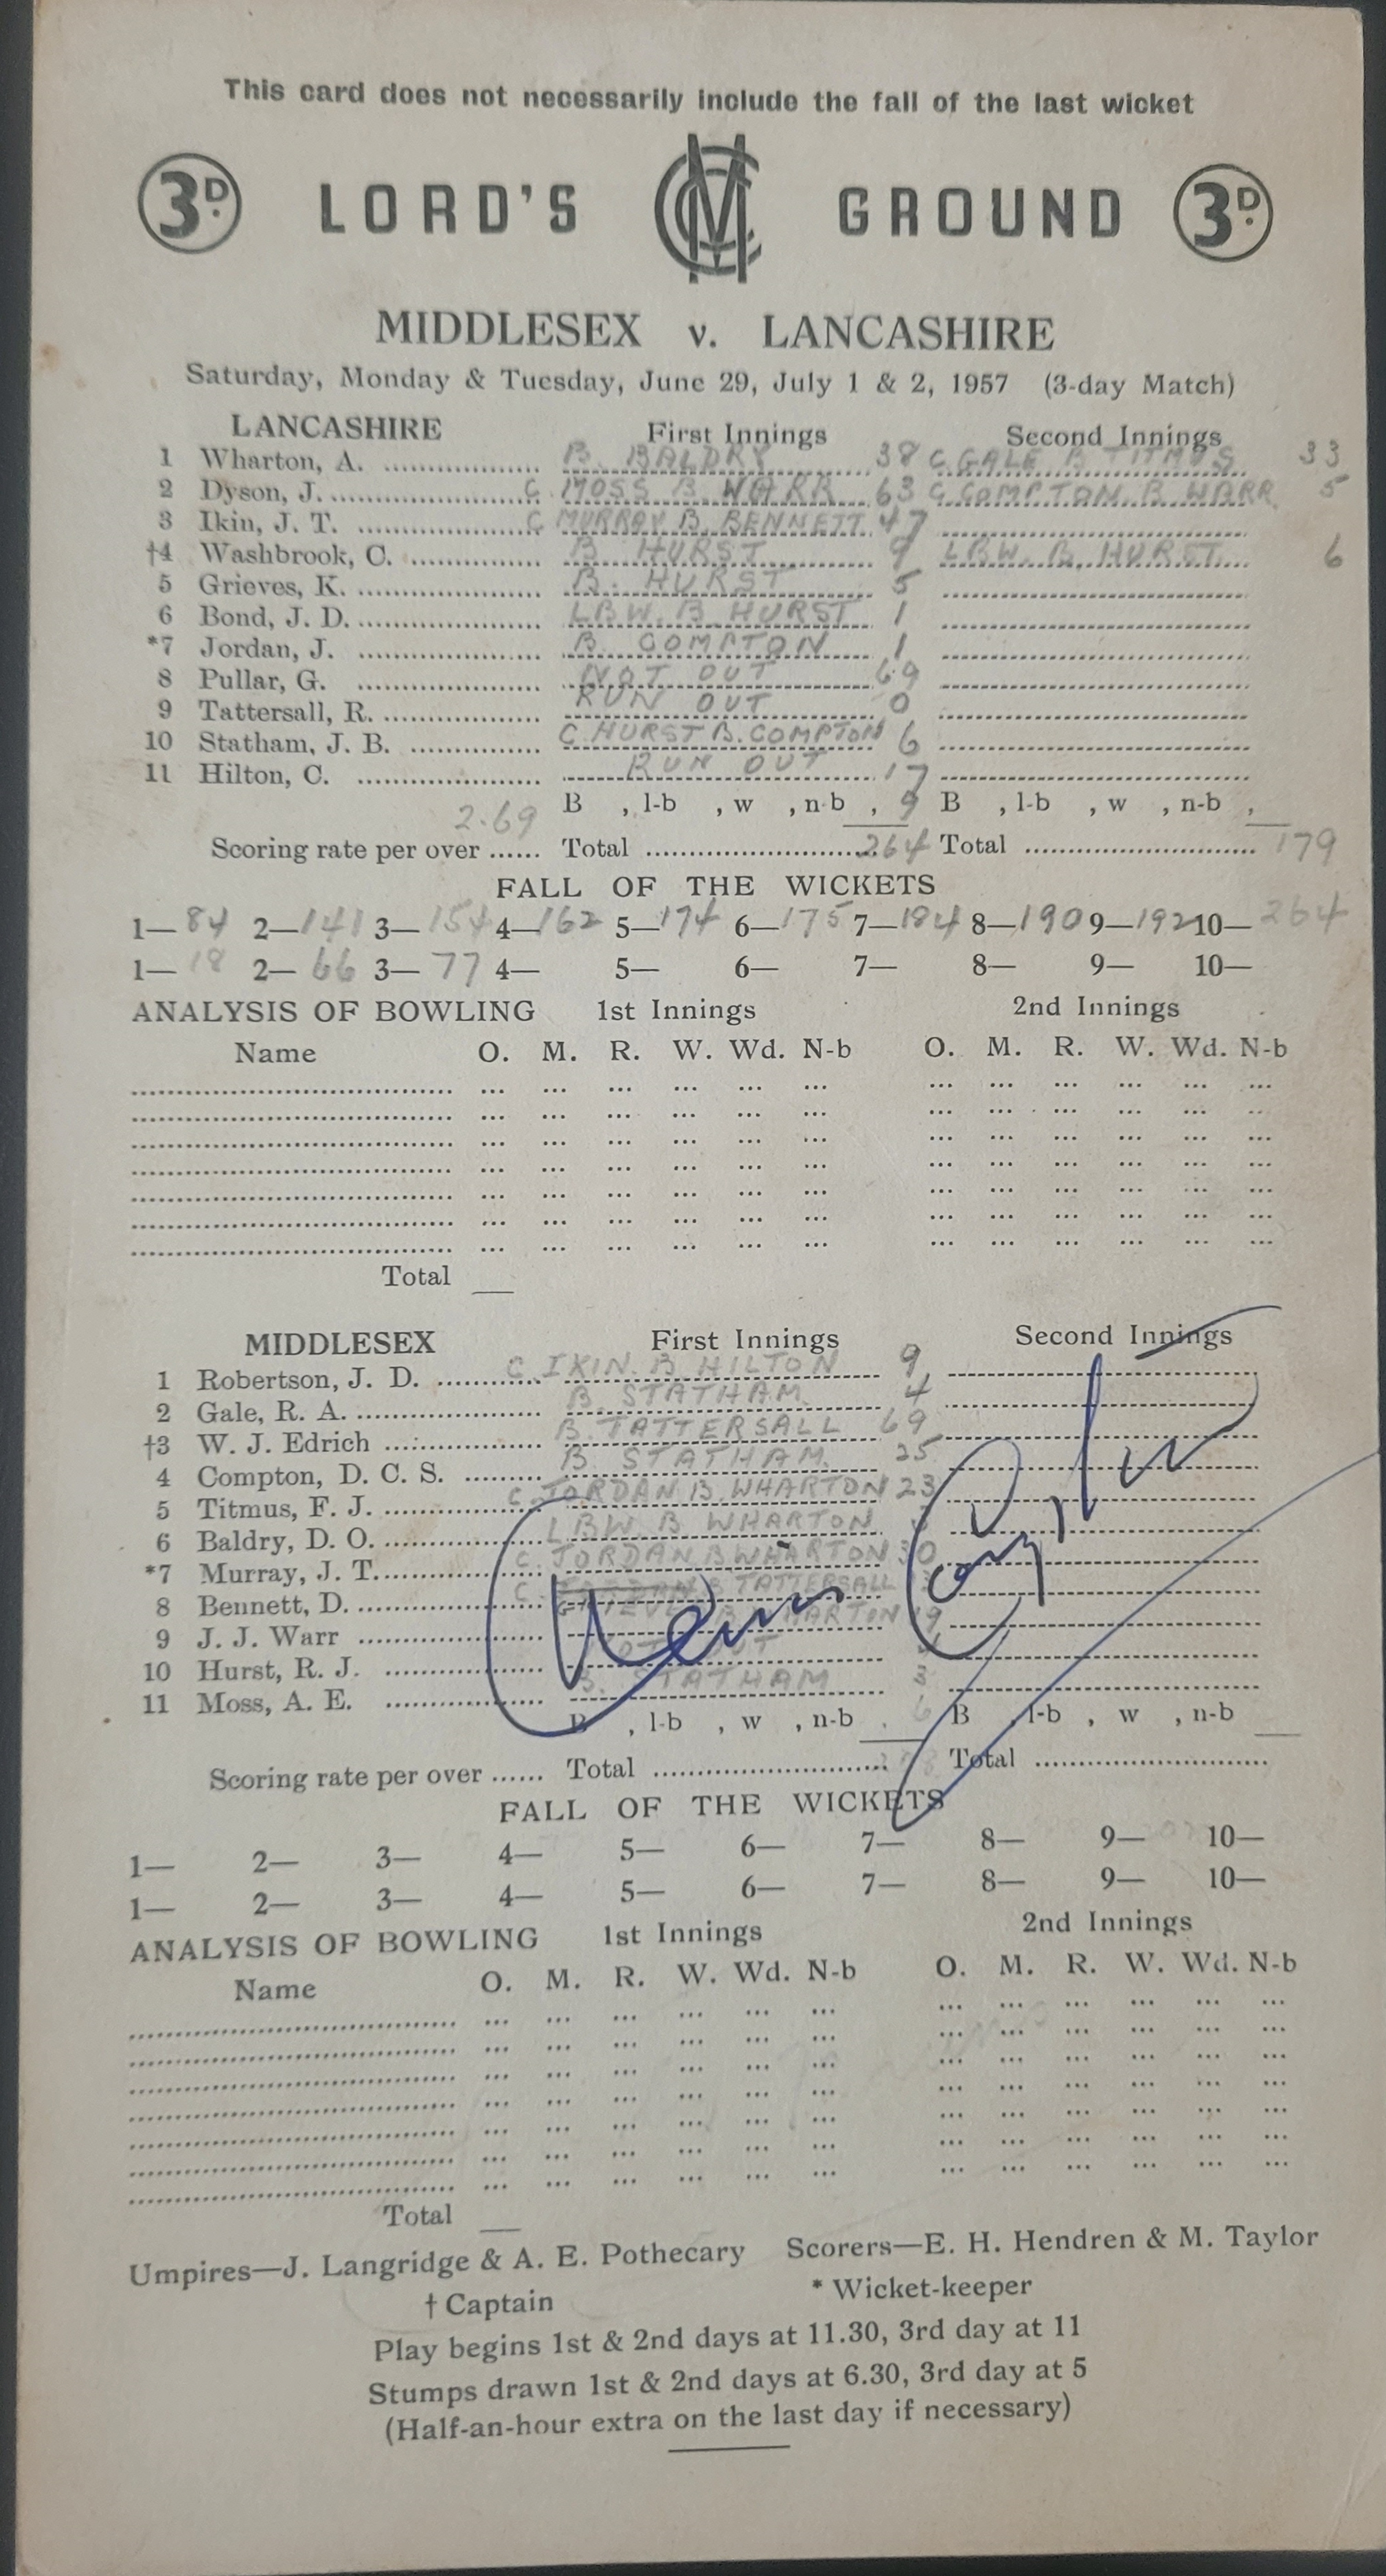 This card does not necessarily include the fall of the last wicket
3D. LORD'S MCC GROUND 3D.
MIDDLESEX v. LANCASHIRE
Saturday, Monday & Tuesday, June 29, July 1 & 2, 1957 (3-day Match)
LANCASHIRE First Innings Second Innings
1 Wharton, A. B. BALDRY 38 C. GALE B TITMUS 33
2 Dyson, J. C. MOSS B. WARR 63 C COMPTON B WARR 5
3 Ikin, J. T. C MURRAY B. BENNETT 47
†4 Washbrook, C. B. HURST 9 LBW. B. HURST 6
5 Grieves, K. B. HURST 5
6 Bond, J. D. LBW. B HURST 1
*7 Jordan, J. B. COMPTON 1
8 Pullar, G. NOT OUT 69
9 Tattersall, R. RUN OUT 0
10 Statham, J. B. C. HURST B. COMPTON 6
11 Hilton, C. RUN OUT 17
B , l-b , w , n-b , 9 B , l-b , w , n-b ,
Scoring rate per over ...... 2.69 Total 264 Total 179
FALL OF THE WICKETS
1—84 2—141 3—154 4—162 5—174 6—175 7—184 8—190 9—192 10—264
1—18 2—66 3—77 4— 5— 6— 7— 8— 9— 10—
ANALYSIS OF BOWLING 1st Innings 2nd Innings
Name O. M. R. W. Wd. N-b O. M. R. W. Wd. N-b
Total
MIDDLESEX First Innings Second Innings
1 Robertson, J. D. C. IKIN. B HILTON 9
2 Gale, R. A. B. STATHAM 4
†3 W. J. Edrich B. TATTERSALL 69
4 Compton, D. C. S. B STATHAM. 25
5 Titmus, F. J. C. JORDAN B. WHARTON 23
6 Baldry, D. O. LBW. B WHARTON
*7 Murray, J. T. C. JORDAN B WHARTON 30
8 Bennett, D. C. B TATTERSALL
9 J. J. Warr GRIEVES B WHARTON 19
10 Hurst, R. J. NOT OUT
11 Moss, A. E. B. STATHAM 3
Denis Compton
B , l-b , w , n-b , 6 B , l-b , w , n-b
Scoring rate per over ...... Total Total
FALL OF THE WICKETS
1— 2— 3— 4— 5— 6— 7— 8— 9— 10—
1— 2— 3— 4— 5— 6— 7— 8— 9— 10—
ANALYSIS OF BOWLING 1st Innings 2nd Innings
Name O. M. R. W. Wd. N-b O. M. R. W. Wd. N-b
Total
Umpires—J. Langridge & A. E. Pothecary Scorers—E. H. Hendren & M. Taylor
† Captain * Wicket-keeper
Play begins 1st & 2nd days at 11.30, 3rd day at 11
Stumps drawn 1st & 2nd days at 6.30, 3rd day at 5
(Half-an-hour extra on the last day if necessary)